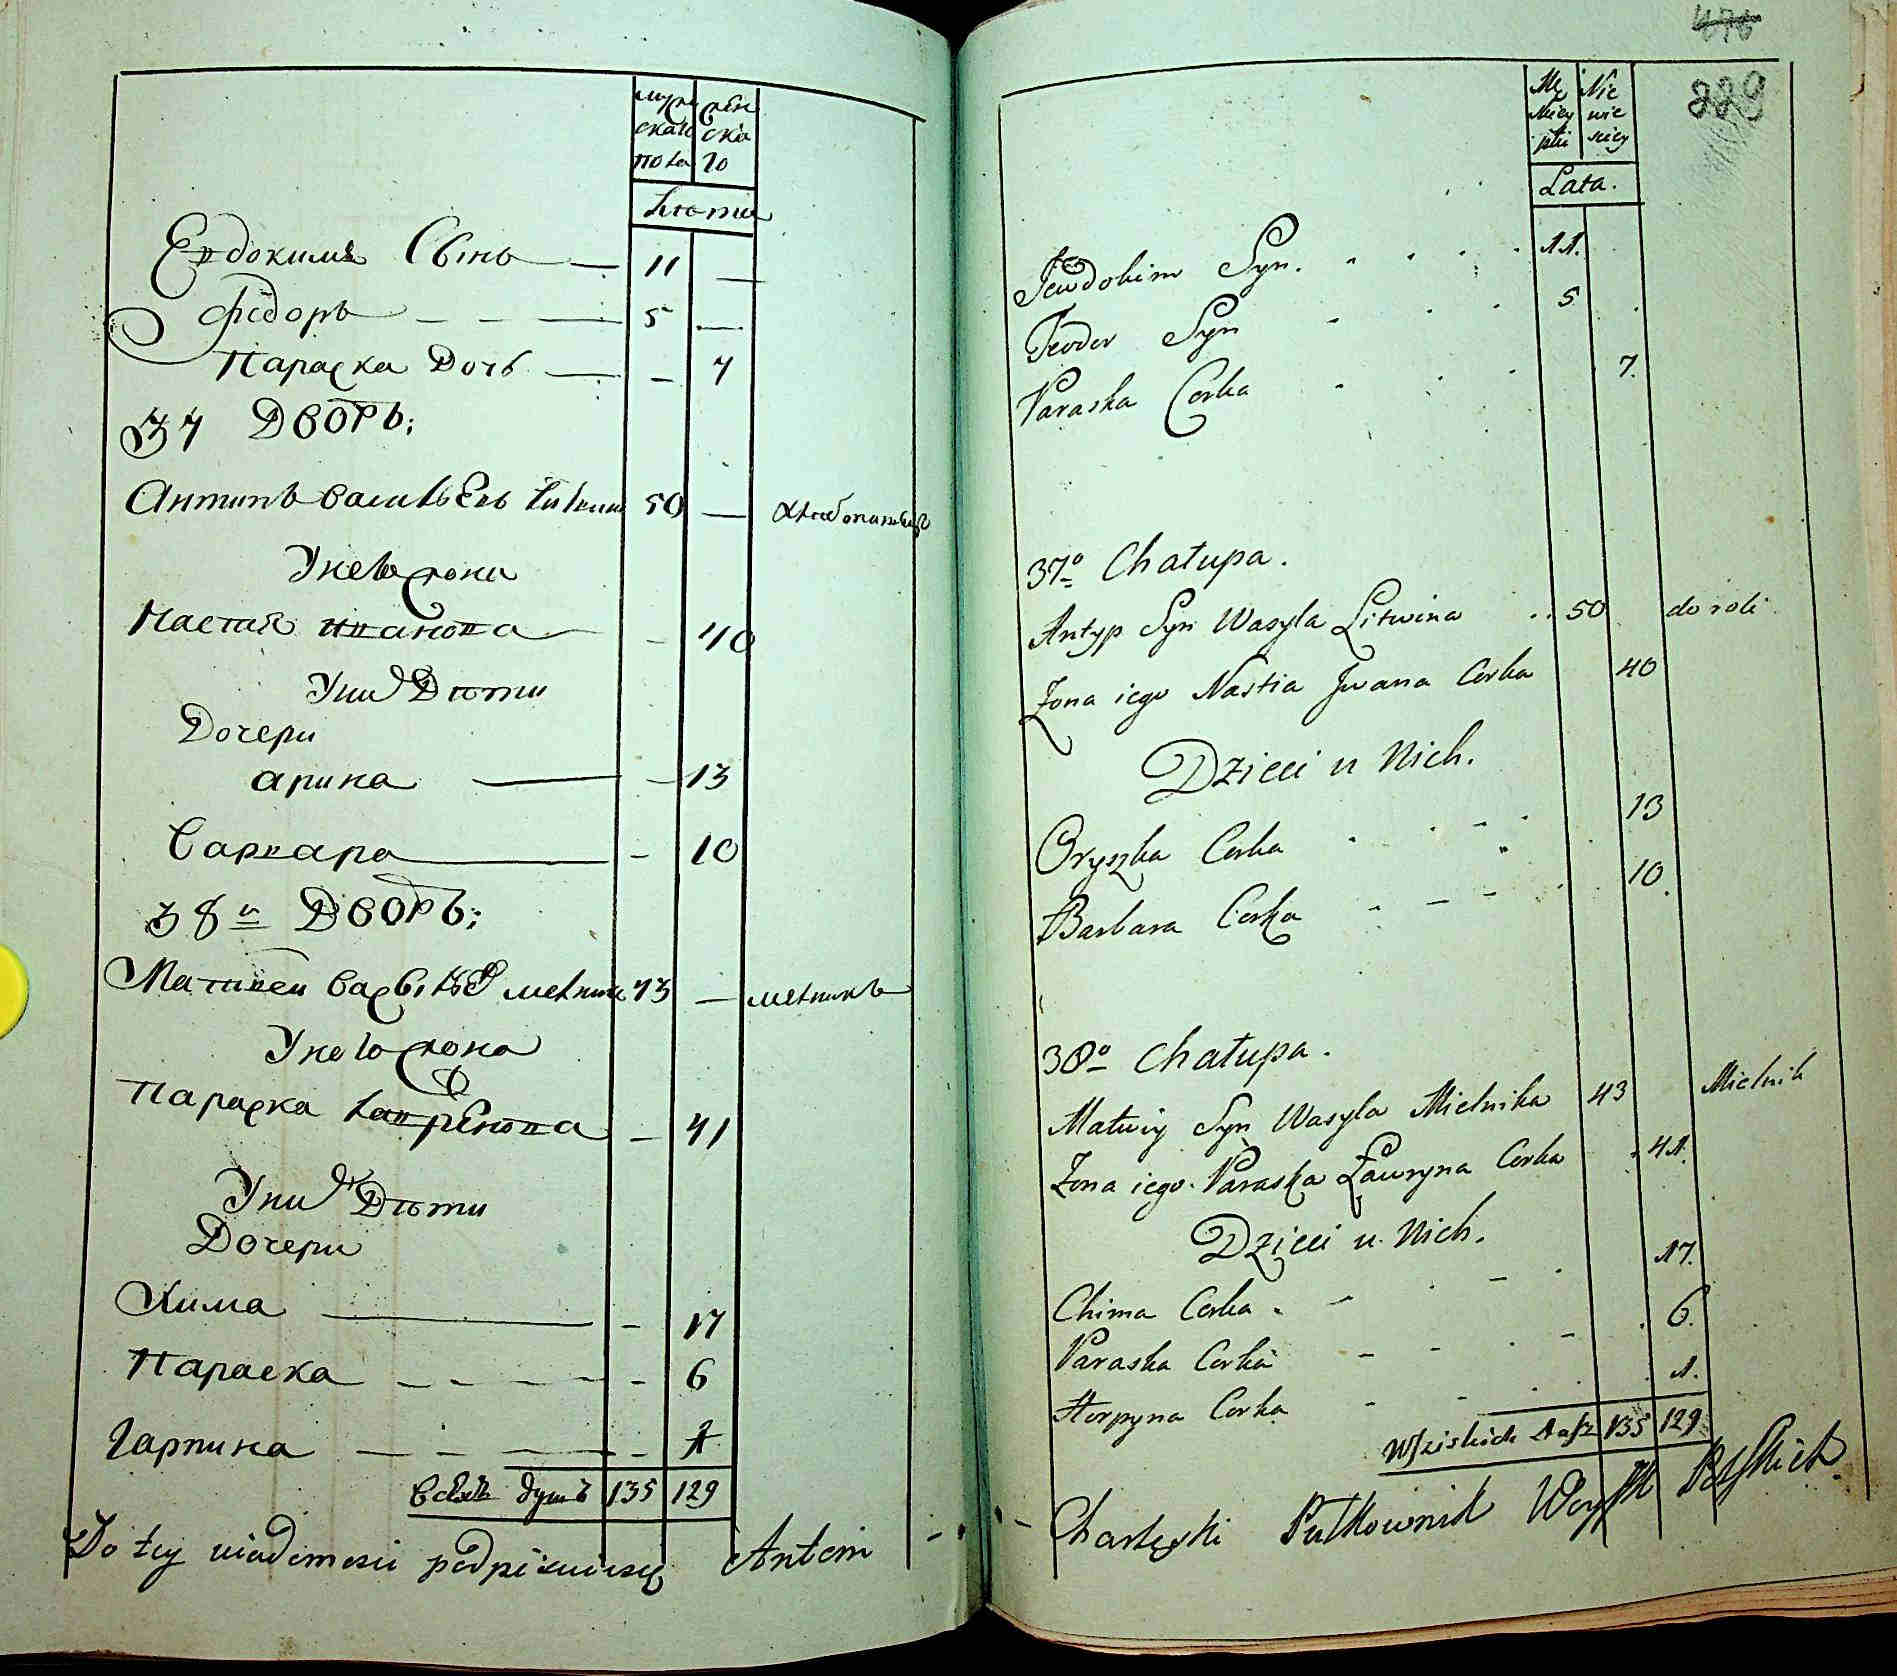 мужескаго пола
женскаго
лѣты
Евдокимъ Сынъ — 11 —
Фёдоръ — — — 5 —
Параска Дочь — — 7
37 Дворъ;
Антипъ Васильевъ Литвин 50 — хлебопашецъ
У него жена
Настия Иванова — - 40
У них Дѣти
Дочери
Арина — — 13
Варвара — - 10
38й Дворъ;
Матвей Васильев мельник 43 — мельникъ
У него жена
Параска Лавренова — 41
У них Дѣти
Дочери
Хима — - 17
Параска — - - - - 6
Гарпина — - — - 1
Всехъ душъ 135 129
Do tey wiadomosci podpisuiesię Antoni
476
229
Mę
Nie
skiey
wie
płci
sciey
Lata.
Jewdokim Syn. 11.
Teodor Syn 5
Paraska Corka 7.
37o Chałupa.
Antyp Syn Wasyla Litwina .. 50 do roli
Żona iego Nastia Jwana Corka 40
Dzieci u Nich.
Oryszka Corka 13
Barbara Corka 10.
38o Chałupa.
Matwiy Syn Wasyla Mielnika 43 Mielnik
Żona iego Paraska Ławryna Corka 41.
Dzieci u Nich.
Chima Corka. 17.
Paraska Corka 6.
Horpyna Corka 1.
Wszistkich dusz 135 129
Charlęski Pułkownik Woysk Polskich